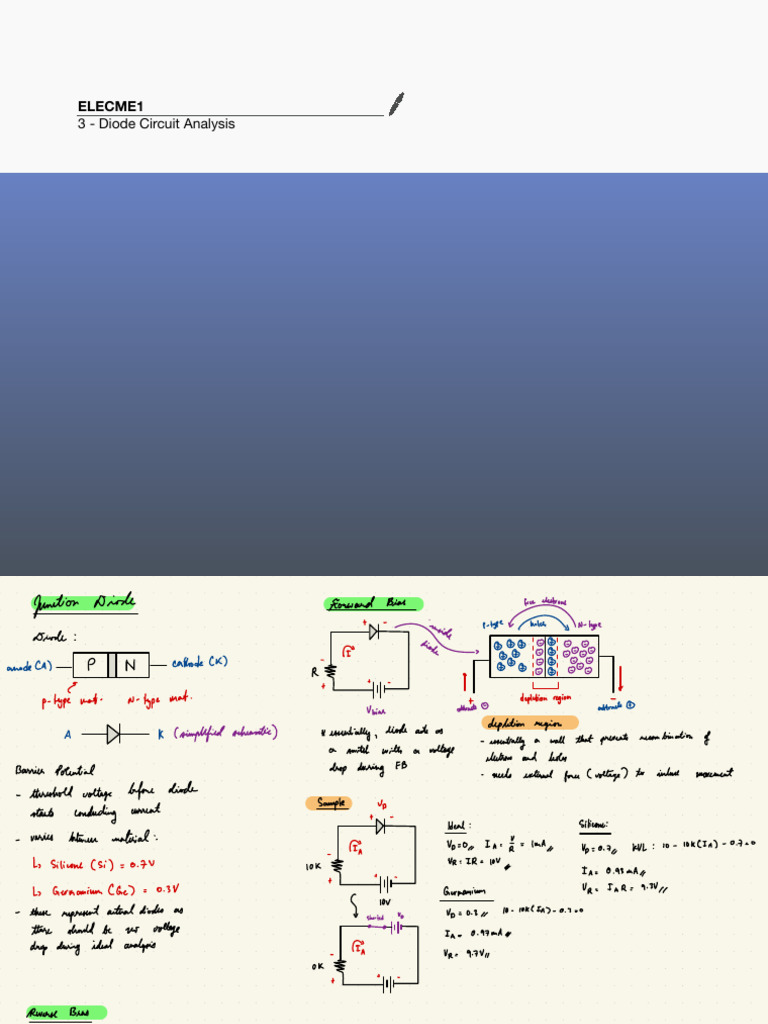 ELECME1
3 - Diode Circuit Analysis
Junction Diode
Diode :
anode (A)
P
N
cathode (K)
p-type mat.
N-type mat.
A
K (simplified schematic)
Barrier Potential
- threshold voltage before diode
starts conducting current
- varies between material :
↳ Silicone (Si) = 0.7V
↳ Germanium (Ge) = 0.3V
- these represent actual diodes as
there should be no voltage
drop during ideal analysis
Reverse Bias
Forward Bias
+ -
I
-
R
+
+ -
Vbias
inside
diode
free electrons
P-type
holes
N-type
depletion region
+
attracts -
-
attracts +
* essentially, diode acts as
a switch with a voltage
drop during FB
depletion region
- essentially a wall that prevents recombination of
electrons and holes
- needs external force (voltage) to induce movement
Sample
VD
+ -
IA
-
10K
+
+ -
10V
shorted
VD
+ -
IA
-
0K
+
+ -
Ideal :
VD = 0 // IA = V/R = 1mA //
VR = IR = 10V //
Germanium
VD = 0.3 // 10 - 10K(IA) - 0.3 = 0
IA = 0.97mA //
VR = 9.7V //
Silicone:
VD = 0.7 // KVL : 10 - 10K(IA) - 0.7 = 0
IA = 0.93mA //
VR = IAR = 9.3V //